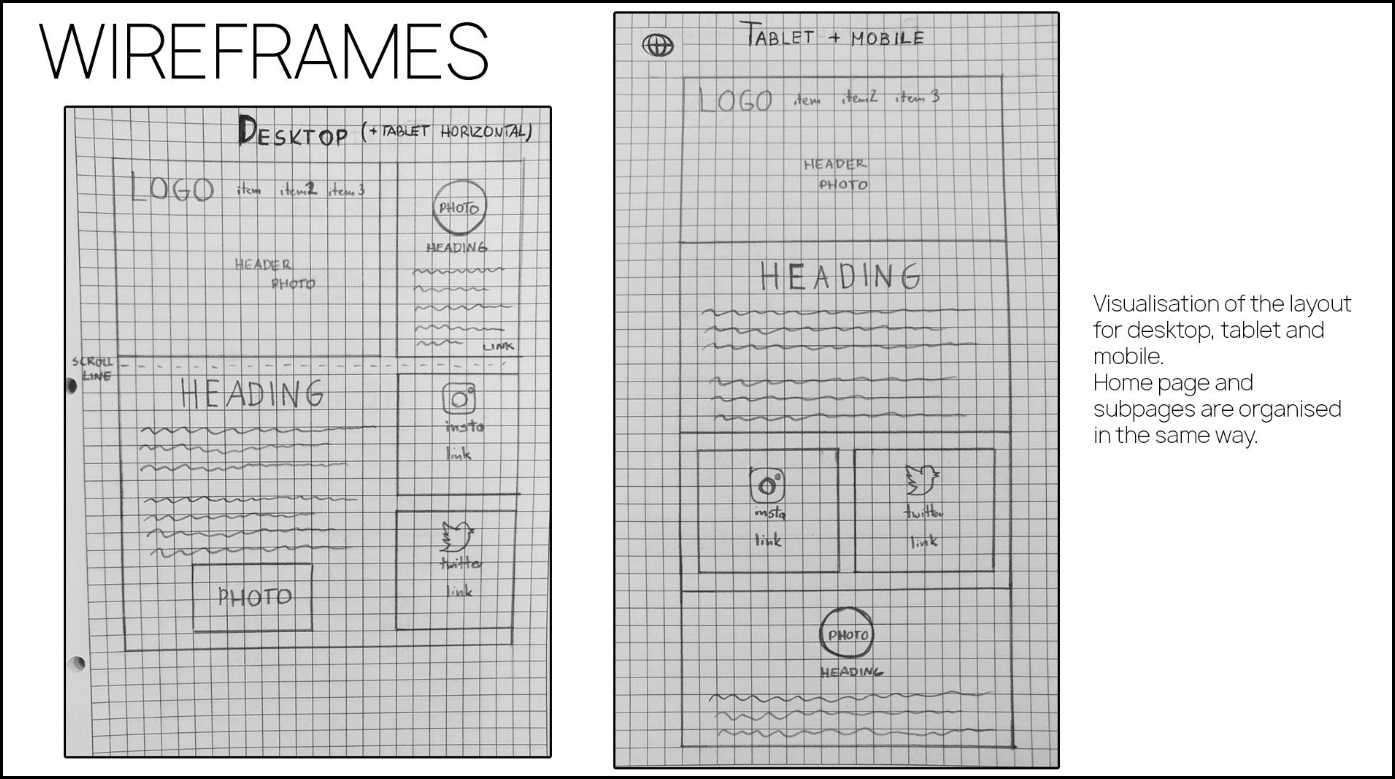 WIREFRAMES
DESKTOP (+TABLET HORIZONTAL)
LOGO item item2 item3
HEADER
PHOTO
PHOTO
HEADING
LINK
SCROLL
LINE
HEADING
PHOTO
insta
link
twitter
link
TABLET + MOBILE
LOGO item item2 item 3
HEADER
PHOTO
HEADING
insta
link
twitter
link
PHOTO
HEADING
Visualisation of the layout
for desktop, tablet and
mobile.
Home page and
subpages are organised
in the same way.